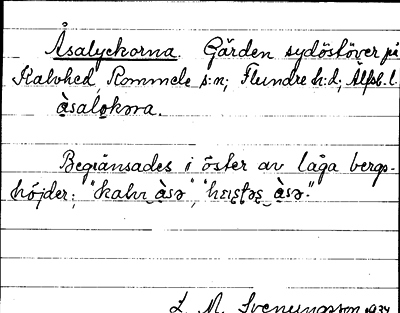 Åsalyckorna. Gärden sydöstöver på
Kalvhed, Rommele s:n; Flundre h:d; Älfsb. l.
àsalo̬kəra.
Begränsades i öster av låga bergs-
höjder; "kalv àsə", "hɛıstəs àsə".
L. M. Svenungsson 1934